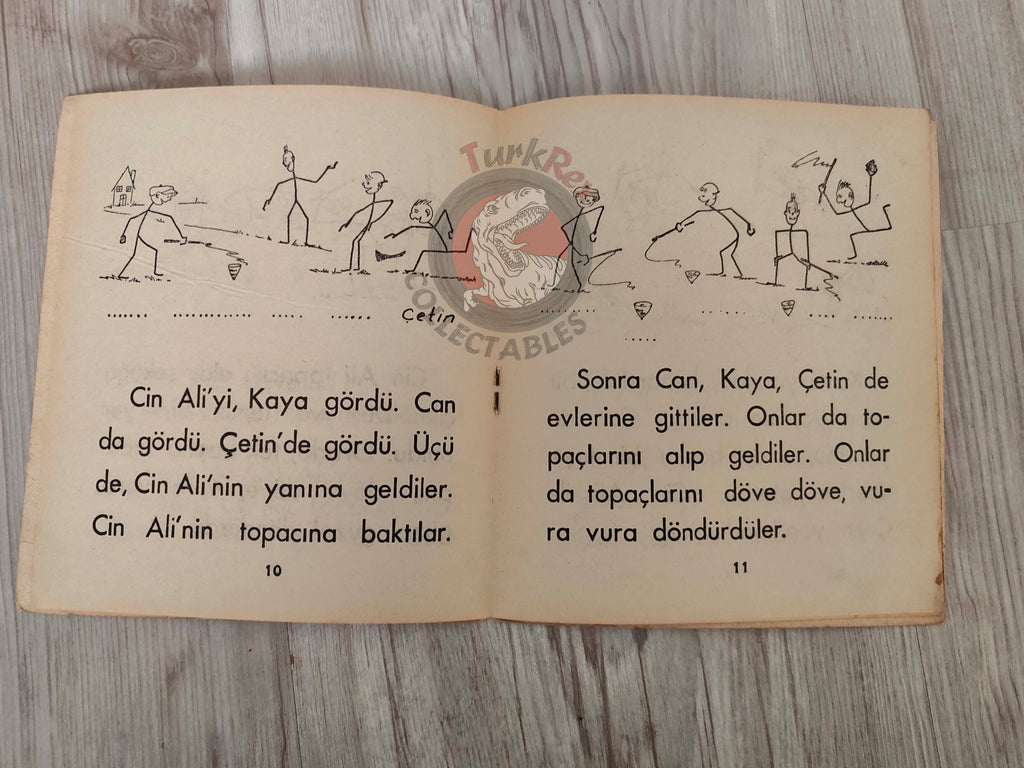 TurkRe
COLLECTABLES
Çetin
Cin Ali'yi, Kaya gördü. Can
da gördü. Çetin'de gördü. Üçü
de, Cin Ali'nin yanına geldiler.
Cin Ali'nin topacına baktılar.
10
Sonra Can, Kaya, Çetin de
evlerine gittiler. Onlar da to-
paçlarını alıp geldiler. Onlar
da topaçlarını döve döve, vu-
ra vura döndürdüler.
11